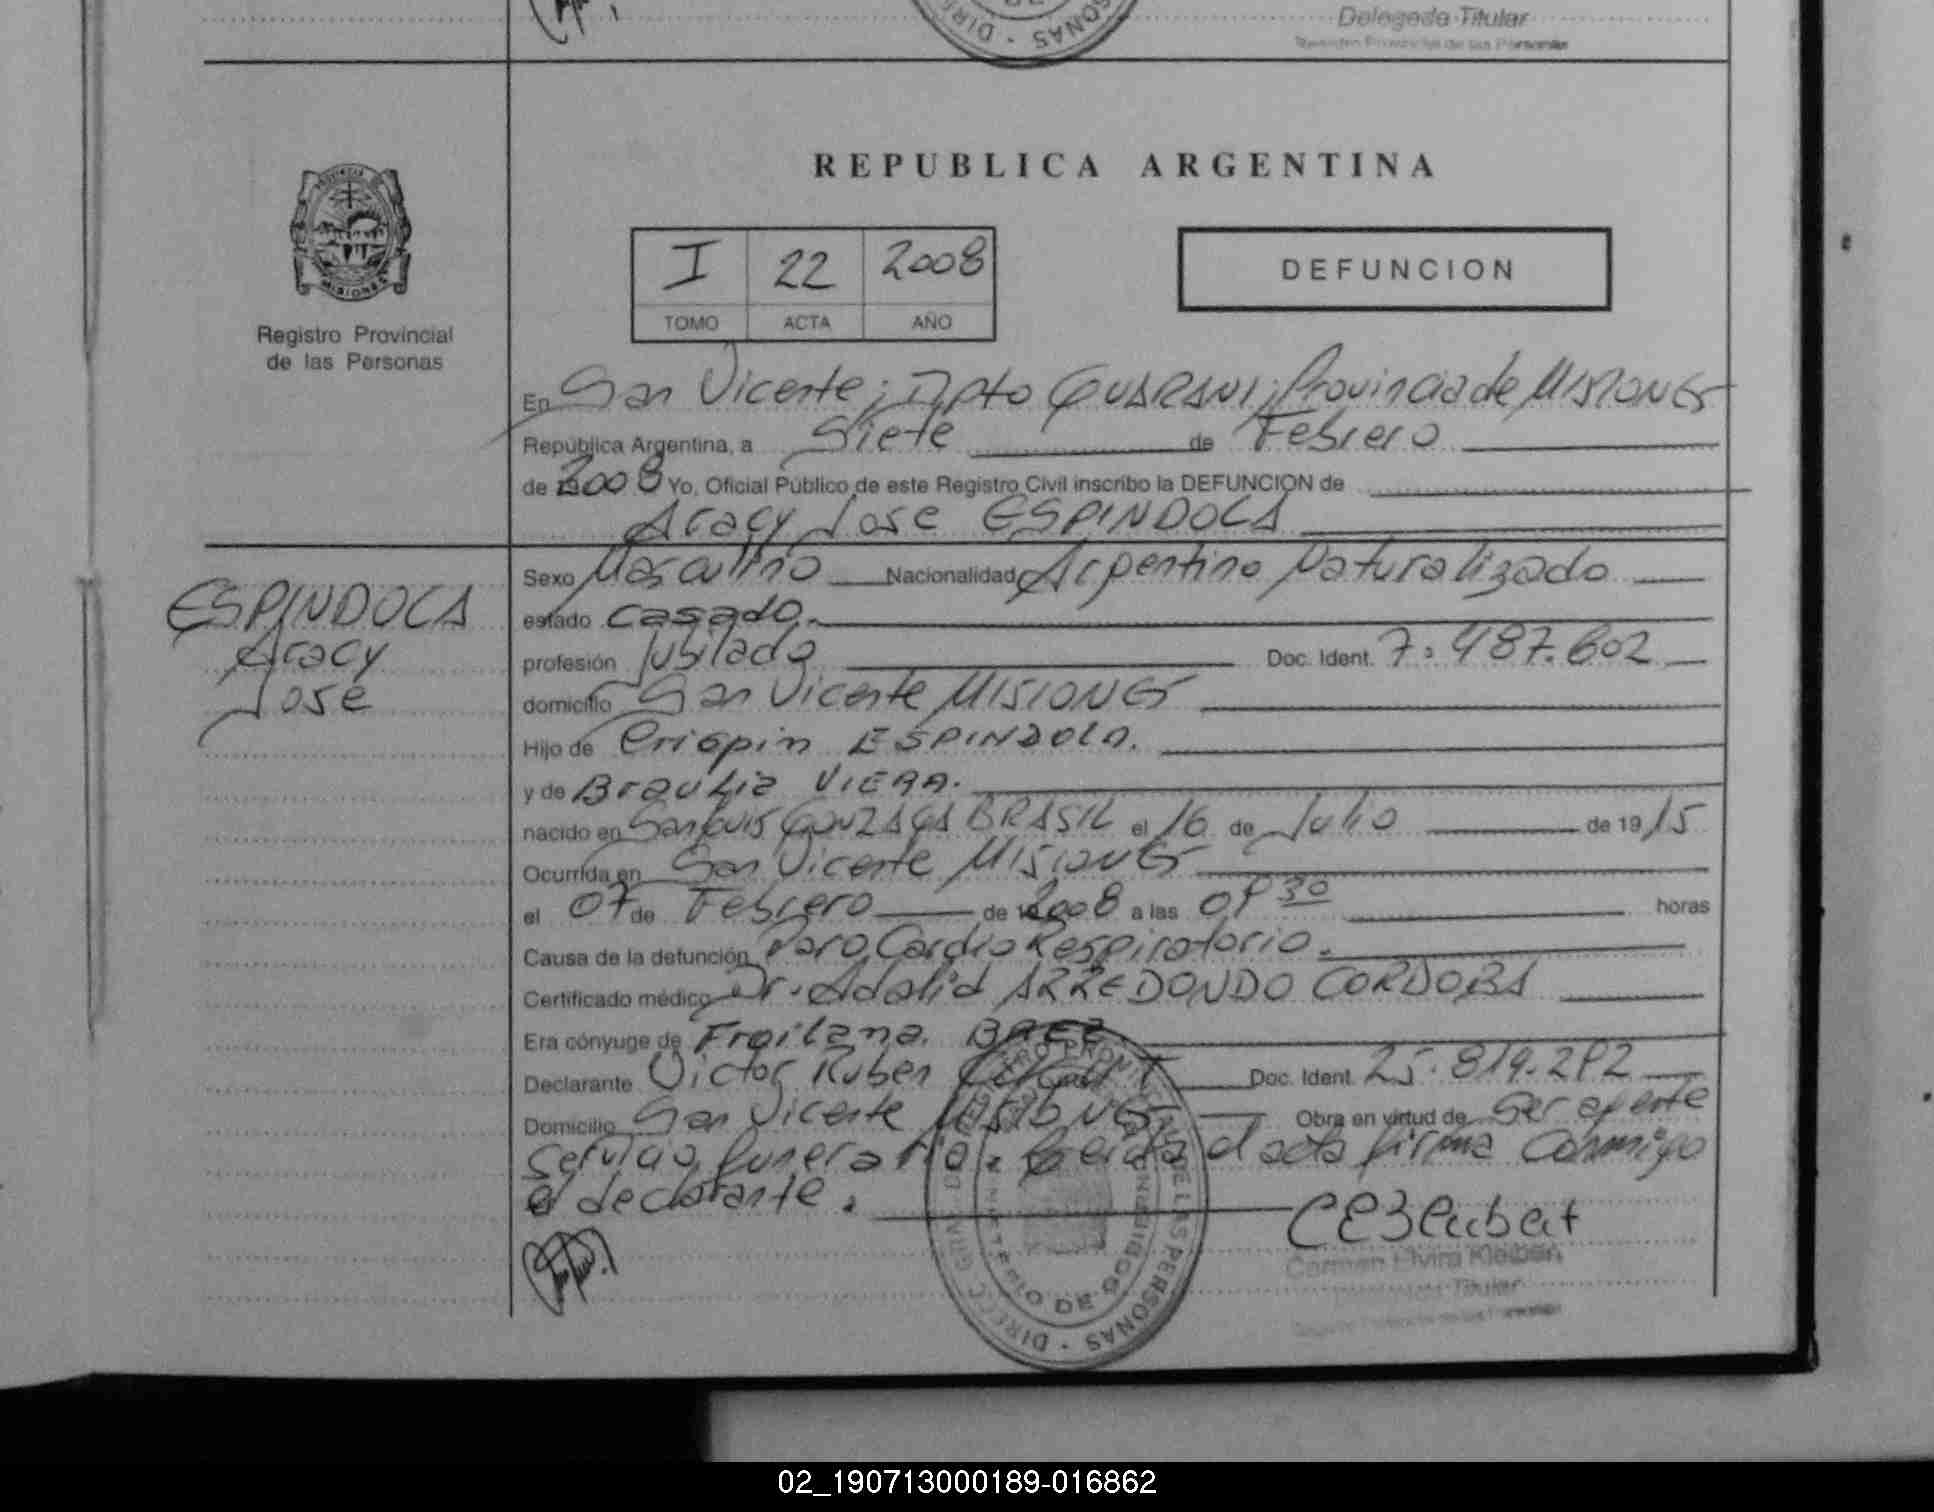 DIRE · SONAS
Delegada Titular
Registro Provincial de las Personas
PROVINCIA
MISIONES
Registro Provincial
de las Personas
REPUBLICA ARGENTINA
I 22 2008
TOMO ACTA AÑO
DEFUNCION
En San Vicente; Dpto GUARANI; Provincia de MISIONES
República Argentina, a Siete de Febrero
de 2008 Yo, Oficial Público de este Registro Civil inscribo la DEFUNCION de
Aracy Jose ESPINDOLA
ESPINDOLA
Aracy
Jose
Sexo Masculino Nacionalidad Argentino Naturalizado
estado casado.
profesión Jubilado Doc. Ident. 7.487.602
domicilio San Vicente MISIONES
Hijo de Crispin ESPINDOLA.
y de Braulia VIERA.
nacido en San Luis GONZAGA BRASIL el 16 de Julio de 1915
Ocurrida en San Vicente MISIONES
el 07 de Febrero de 2008 a las 09 30 horas
Causa de la defunción Paro Cardio Respiratorio.
Certificado médico Dr. Adalid ARREDONDO CORDOBA
Era cónyuge de Froilana BAEZ
Declarante Victor Ruben Doc. Ident. 25.819.292
Domicilio San Vicente MISIONES Obra en virtud de Ser agente
servicio funerario. Leida el acta firma Conmigo
el declarante.
Carmen Elvira Kleiben
Titular
DE LAS PERSONAS · DIRECC GRAL
MINISTERIO DE GOBIERNO
02_190713000189-016862